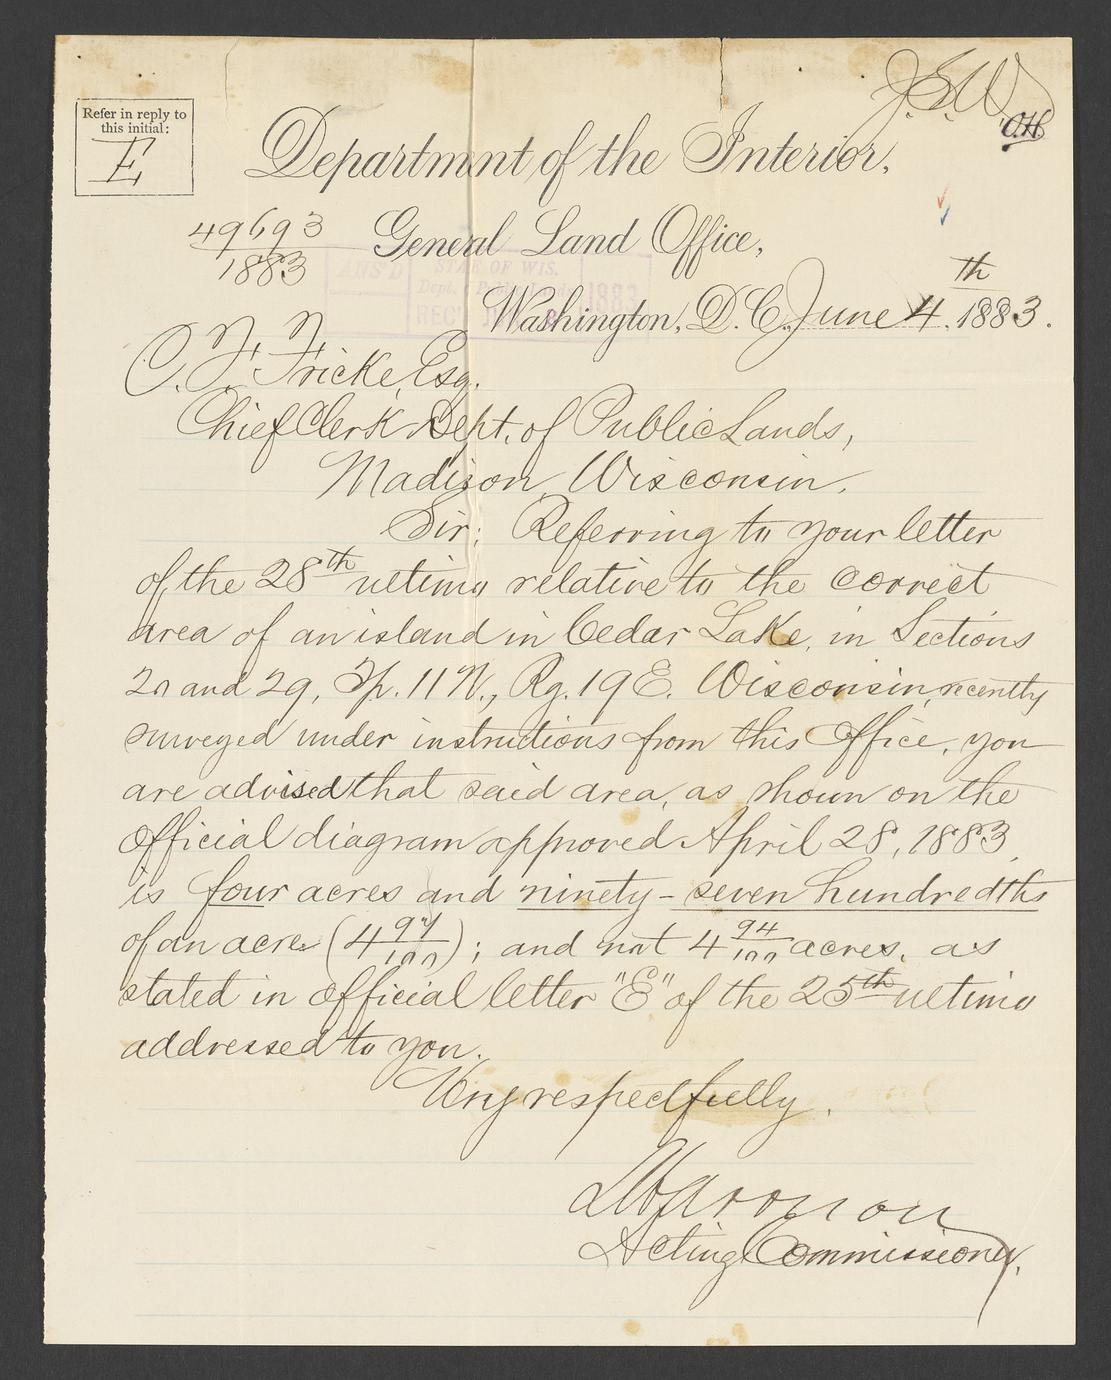 J.S.W.
O.H.
Refer in reply to
this initial:
E
Department of the Interior,
49693
1883
General Land Office,
ANS'D
STATE OF WIS.
Dept. of Public Lands
REC'D
1883
Washington, D.C. June 4th 1883.
C. F. F. Fricke, Esq.
Chief Clerk Dept. of Public Lands,
Madison, Wisconsin.
Sir: Referring to your letter
of the 28th ultimo relative to the correct
area of an island in Cedar Lake, in Sections
20 and 29, Tp. 11 N., Rg. 19 E. Wisconsin, recently
surveyed under instructions from this Office, you
are advised that said area, as shown on the
official diagram approved April 28, 1883,
is four acres and ninety-seven hundredths
of an acre (4 97/100); and not 4 94/100 acres, as
stated in official letter "E" of the 25th ultimo
addressed to you.
Very respectfully.
L Harrison
Acting Commissioner.